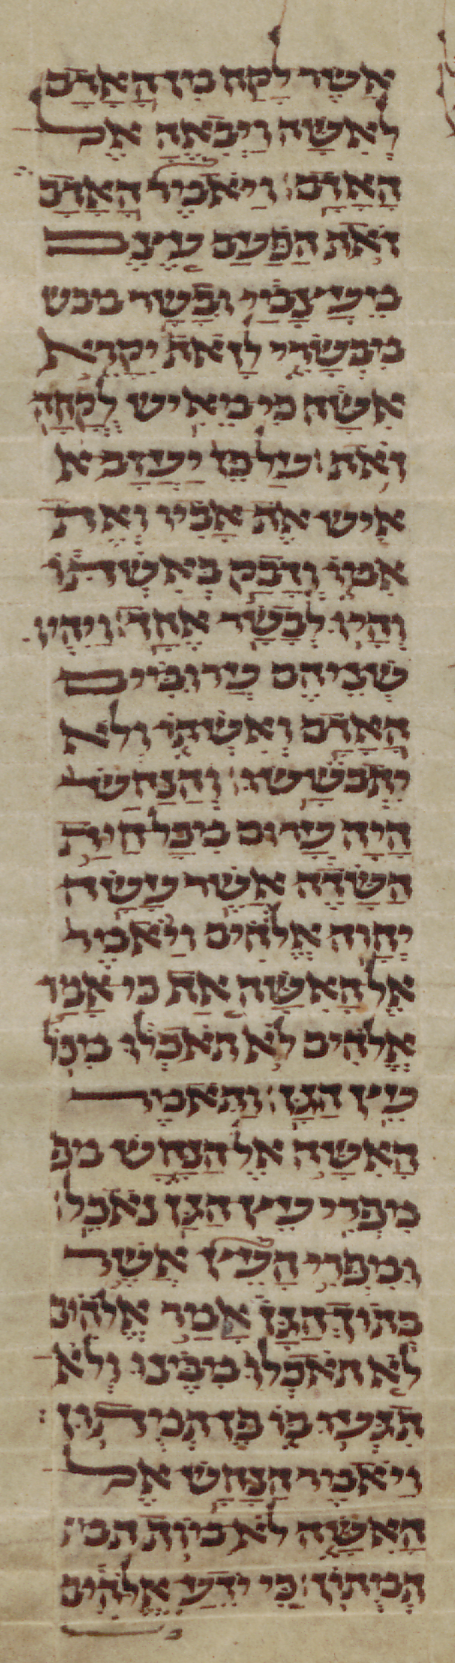 אֲשֶׁר לָקַח מִן הָאָדָם
לְאִשָּׁה וַיְבִאֶהָ אֶל
הָאָדָם׃ וַיֹּאמֶר הָאָדָם
זֹאת הַפַּעַם עֶצֶם
מֵעֲצָמַי וּבָשָׂר מבש
מִבְּשָׂרִי לְזֹאת יִקָּרֵא
אִשָּׁה כִּי מֵאִישׁ לֻקֳחָה
זֹאת׃ עַל כֵּן יַעֲזָב א
אִישׁ אֶת אָבִיו וְאֶת
אִמּוֹ וְדָבַק בְּאִשְׁתּוֹ
וְהָיוּ לְבָשָׂר אֶחָד׃ וַיִּהְיוּ
שְׁנֵיהֶם עֲרוּמִּים
הָאָדָם וְאִשְׁתּוֹ וְלֹא
יִתְבֹּשָׁשׁוּ׃ וְהַנָּחָשׁ
הָיָה עָרוּם מִכָּל חַיַּת
הַשָּׂדֶה אֲשֶׁר עָשָׂה
יְהוָה אֱלֹהִים וַיֹּאמֶר
אֶל הָאִשָּׁה אַף כִּי אָמַר
אֱלֹהִים לֹא תֹאכְלוּ מִכֹּל
עֵץ הַגָּן׃ וַתֹּאמֶר
הָאִשָּׁה אֶל הַנָּחָשׁ מפ
מִפְּרִי עֵץ הַגָּן נֹאכֵל׃
וּמִפְּרִי הָעֵץ אֲשֶׁר
בְּתוֹךְ הַגָּן אָמַר אֱלֹהִים
לֹא תֹאכְלוּ מִמֶּנּוּ וְלֹא
תִגְּעוּ בּוֹ פֶּן תְּמֻתוּן׃
וַיֹּאמֶר הַנָּחָשׁ אֶל
הָאִשָּׁה לֹא מוֹת תמת
תְּמֻתוּן׃ כִּי יֹדֵעַ אֱלֹהִים